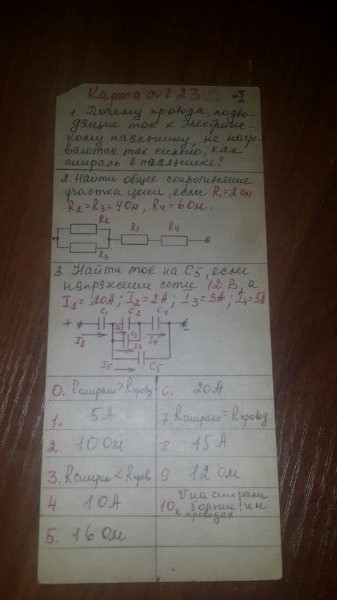 Карта №23 -I
1. Почему провода, подво-
дящие ток к электричес-
кому паяльнику, не нагре-
ваются так сильно, как
спираль в паяльнике?
2. Найти общее сопротивление
участка цепи, если R₁=2 ом
R₂=R₃=4 ом, R₄=6 ом.
R₂
R₁ R₄
R₃
3. Найти ток на C₅, если
напряжение сети 12 В, а
I₁=20А; I₂=2А; I₃=3А; I₄=5А
+ C₁ C₂ C₄
I₁
I₅ C₅
0. Rспирали > Rпровод
1. 5А
2. 10 Ом
3. Rспирал < Rпров
4. 10А
5. 16 Ом
6. 20А
7 Rспирали = Rпровод
8 15 А
9 12 ом
10. на спирали
больше чем
в проводах